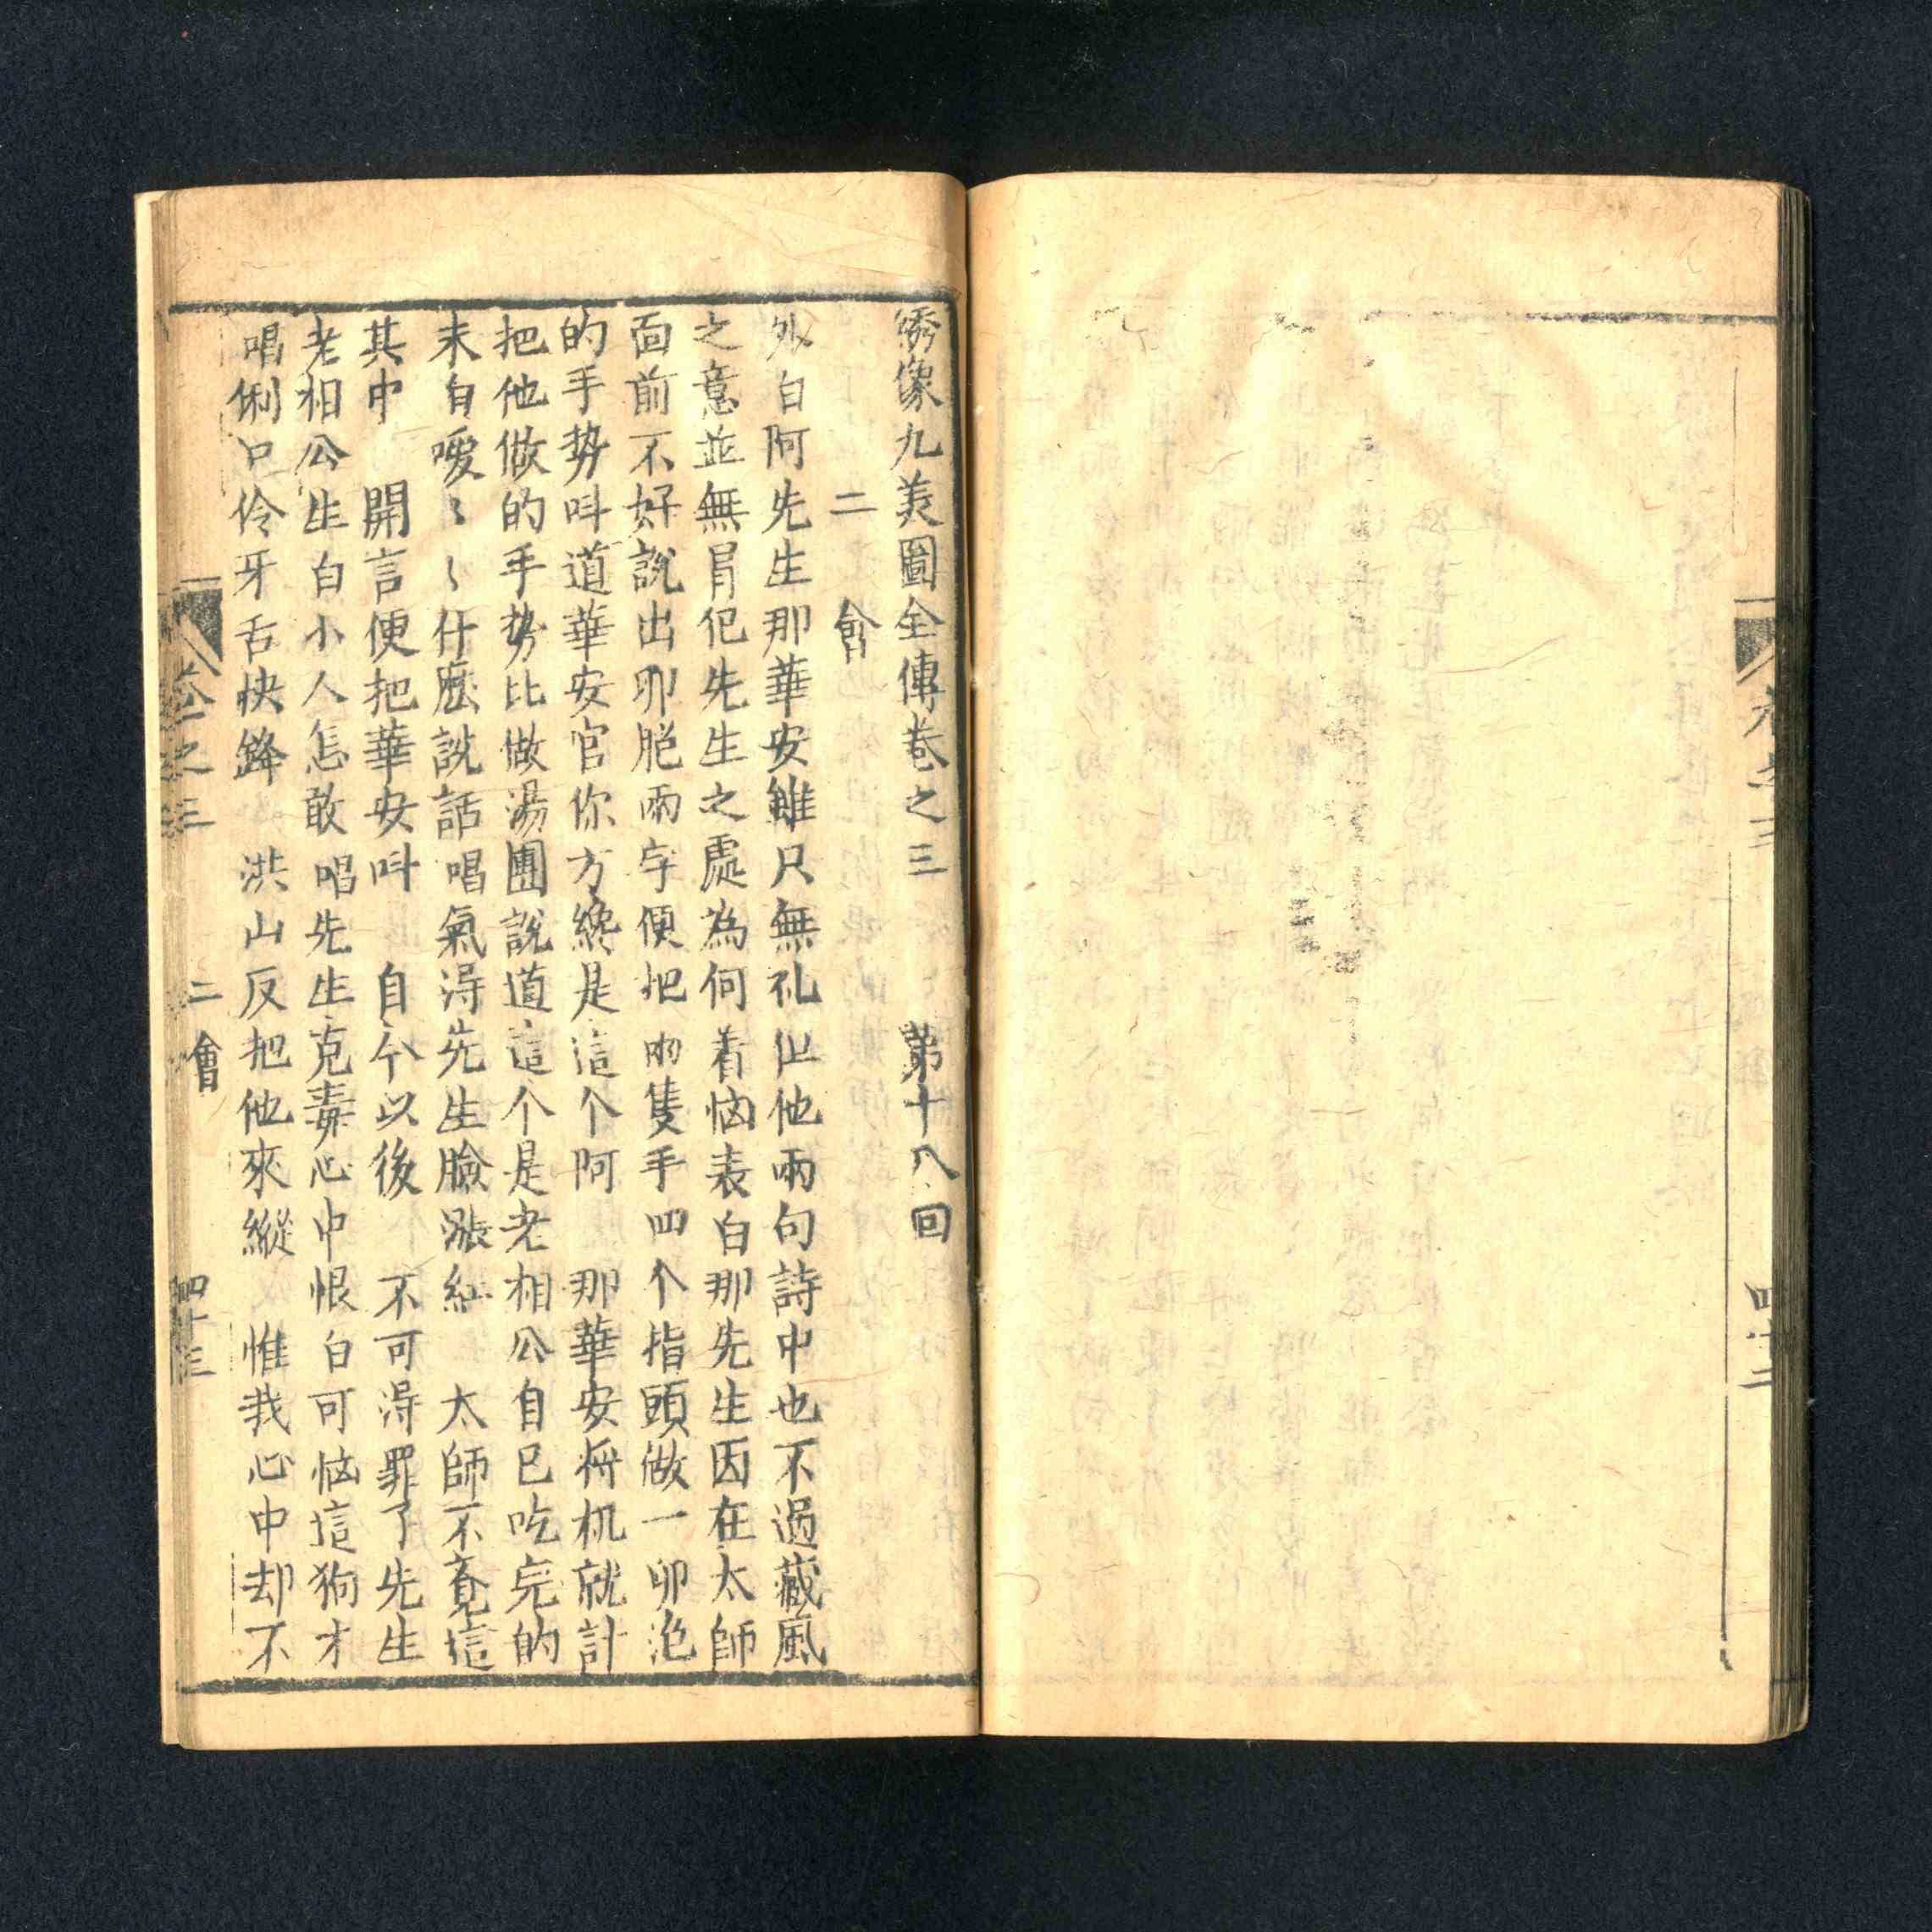 卷之三
四十二
绣像九美圖全傳卷之三 第十八回
二會
外白阿先生那華安雖尺無礼但他兩句詩中也不過藏風
之意並無冐犯先生之處為何着恼表白那先生因在太師
面前不好說出卵脬兩字便把兩隻手四个指頭做一卵泡
的手势呌道華安官你方纔是這个阿 那華安將机就計
把他做的手势比做湯團說道這个是老相公自已吃完的
末自嗳〻〻什麽説話唱氣淂先生臉漲紅 太師不竟這
其中 開言便把華安呌 自今以後 不可淂罪了先生
老相公生白小人怎敢唱先生克毒心中恨白可恼這狗才
唱俐口伶牙舌快鋒 洪山反把他來縱 惟我心中却不
卷之三 二會 四十三